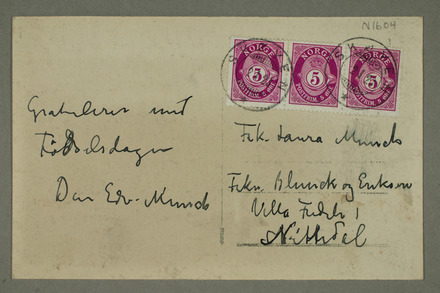 N1604
NORGE
5
POSTFRIM. 5 ØRE
NORGE
5
POSTFRIM. 5 ØRE
NORGE
5
POSTFRIM. 5 ØRE
Gratulerer med
Fødselsdagen
Din Edv. Munch
Frk. Laura Munch
Frkn. Blunck og Eriksen
Villa
Nittedal